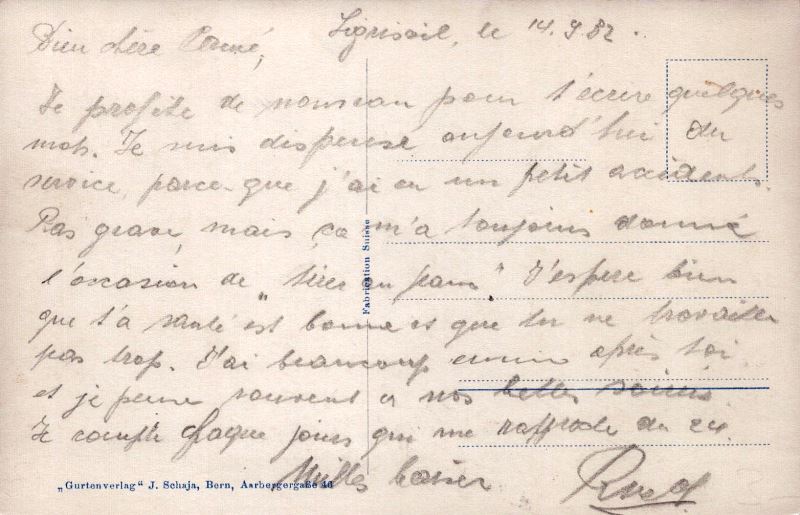 le 14.9.82.
Bien chère
Je profite de nouveau pour t'écrire quelques
mots. Je suis dispensé aujourd'hui du
service, parce-que j'ai eu un petit accidents.
Pas grave, mais ça m'a toujours donné
l'occasion de „tirer au flanc". J'espère bien
que t'a santé est bonne et que tu ne travailles
pas trop. J'ai beaucoup ennui après toi
et je pense souvent à nos belles soirées.
Je compte chaque jours que me rapproche du 24.
Milles baiser
Fabrication Suisse
„Gurtenverlag" J. Schaja, Bern, Aarbergergaße 46